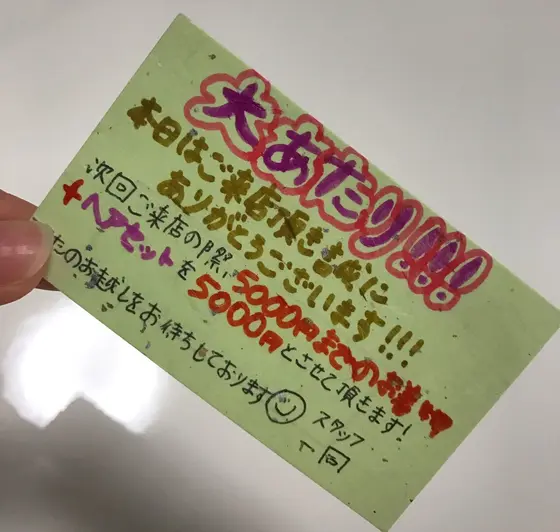 大あたり!!!!
本日はご来店頂き誠に
ありがとうございます!!!
次回ご来店の際、5000円までのお着
+ヘアセットを5000円とさせて頂きます!
たのお越しをお待ちしております
スタッフ
一同